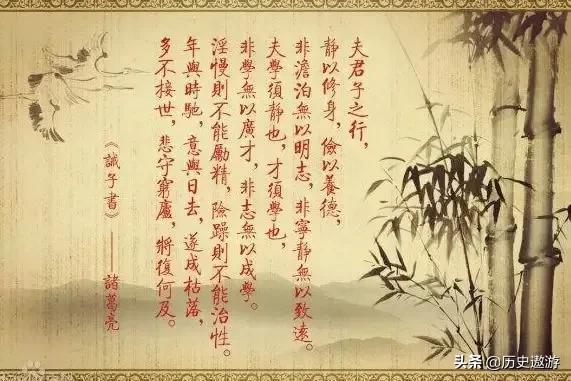 夫君子之行，
靜以修身，儉以養德，
非澹泊無以明志，非寧靜無以致遠。
夫學須靜也，才須學也，
非學無以廣才，非志無以成學。
淫慢則不能勵精，險躁則不能治性。
年與時馳，意與日去，遂成枯落，
多不接世，悲守窮廬，將復何及。
《誡子書》——諸葛亮
头条 @历史遨游